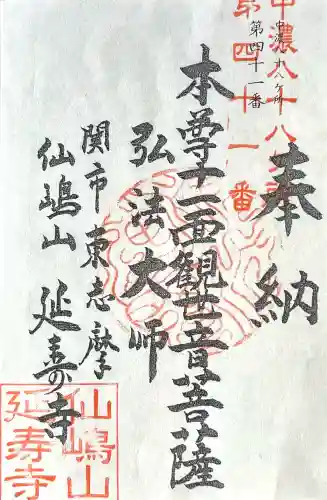 中濃八十八ケ所
第四十一番
中濃八十八
第四十一番
奉納
本尊十一面観世音菩薩
弘法大師
関市東志摩
仙嶋山 延寿寺
仙嶋山
延寿寺